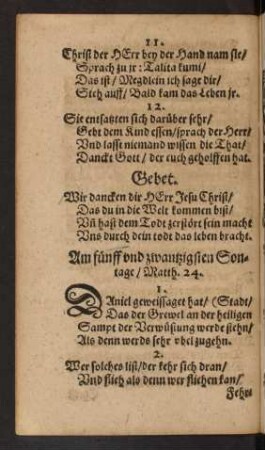 11.
Christ der HErr bey der Hand nam sie/
Sprach zu jr: Talita kumi/
Das ist/ Megdlein ich sage dir/
Steh auff/ Bald kam das Leben jr.
12.
Sie entsatzten sich darüber sehr/
Gebt dem Kind essen/sprach der Herr/
Vnd lasse niemand wissen die That/
Danckt Gott/ der euch geholffen hat.
Gebet.
Wir dancken dir HErr Jesu Christ/
Das du in die Welt kommen bist/
Vñ hast dem Todt zerstört sein macht
Vns durch dein todt das leben bracht.
Am fünff vnd zwantzigsten Son-
tage/ Matth. 24.
1.
DAniel geweissaget hat/ (Stadt/
Das der Grewel an der heiligen
Sampt der Verwüsung werde stehn/
Als denn werds sehr vbel zugehn.
2.
Wer solches list/der kehr sich dran/
Vnd flieh als denn wer fliehen kan/
Fehrt